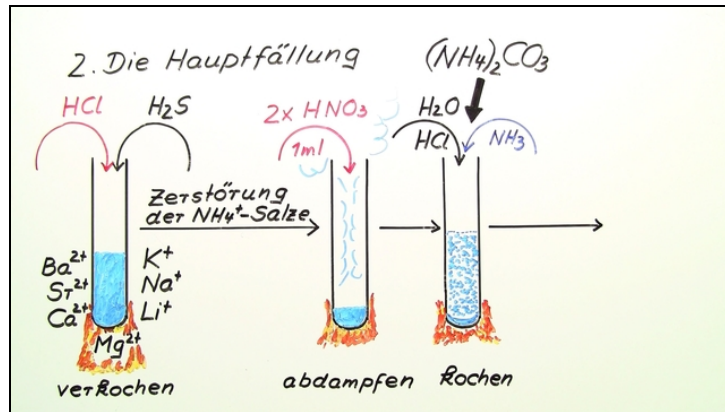 2. Die Hauptfällung
(NH4)2CO3
HCl
H2S
2x HNO3
1ml
H2O
HCl
NH3
Zerstörung
der NH4+-Salze
Ba2+
Sr2+
Ca2+
K+
Na+
Li+
Mg2+
verkochen
abdampfen
kochen